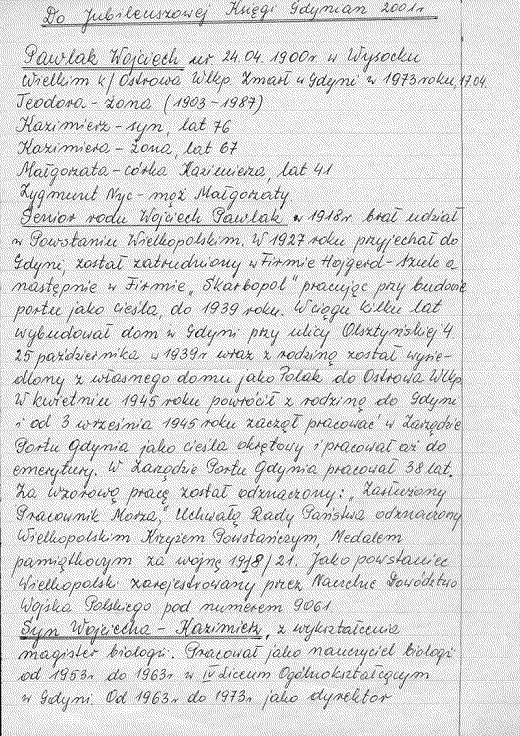 Do Jubileuszowej Księgi Gdynian 2001r
Pawlak Wojciech ur 24.04.1900r. w Wysocku
Wielkim k/Ostrowa Wlkp. Zmarł w Gdyni w 1973 roku, 17.04.
Teodora - żona (1903-1987)
Kazimierz - syn, lat 76
Kazimiera - żona, lat 67
Małgorzata - córka Kazimierza, lat 41
Zygmunt Nyc - mąż Małgorzaty
Senior rodu Wojciech Pawlak w 1918r brał udział
w Powstaniu Wielkopolskim. W 1927 roku przyjechał do
Gdyni, został zatrudniony w Firmie Hojgerd-Szulc a
następnie w Firmie „Skarbopol" pracując przy budowie
portu jako cieśla, do 1939 roku. W ciągu kilku lat
wybudował dom w Gdyni przy ulicy Olsztyńskiej 4.
25 października w 1939r wraz z rodziną został wysie-
dlony z własnego domu jako Polak do Ostrowa Wlkp.
W kwietniu 1945 roku powrócił z rodziną do Gdyni
i od 3 września 1945 roku zaczął pracować w Zarządzie
Portu Gdynia jako cieśla okrętowy i pracował aż do
emerytury. W Zarządzie Portu Gdynia pracował 38 lat.
Za wzorową pracę został odznaczony: „Zasłużony
Pracownik Morza," Uchwałą Rady Państwa odznaczony
Wielkopolskim Krzyżem Powstańczym, Medalem
pamiątkowym za wojnę 1918/21. Jako powstaniec
Wielkopolski zarejestrowany przez Naczelne Dowództwo
Wojska Polskiego pod numerem 9061
Syn Wojciecha - Kazimierz, z wykształcenia
magister biologii. Pracował jako nauczyciel biologii
od 1953r do 1963r w IV Liceum Ogólnokształcącym
w Gdyni. Od 1963r do 1973r jako dyrektor